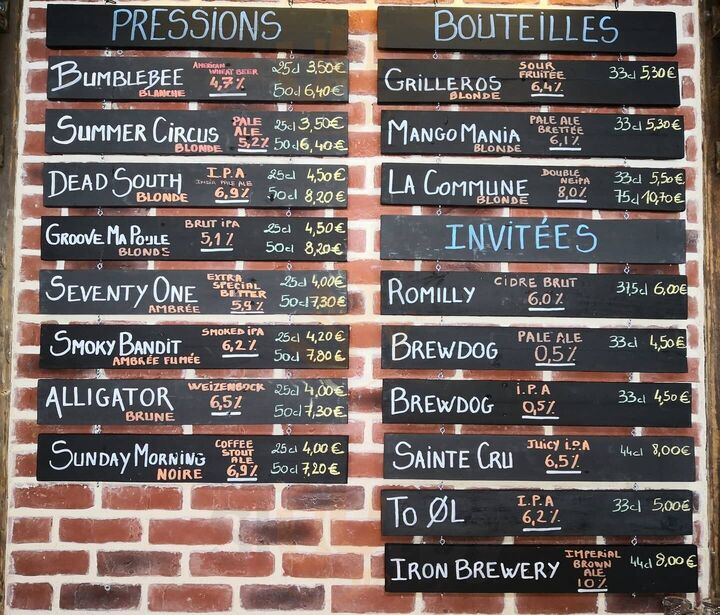 PRESSIONS
BUMBLEBEE AMERICAN WHEAT BEER 25cl 3,50€
BLANCHE 4,7% 50cl 6,40€
SUMMER CIRCUS PALE ALE 25cl 3,50€
BLONDE 5,2% 50cl 6,40€
DEAD SOUTH I.P.A INDIA PALE ALE 25cl 4,50€
BLONDE 6,9% 50cl 8,20€
GROOVE MA POULE BRUT IPA 25cl 4,50€
BLONDE 5,1% 50cl 8,20€
SEVENTY ONE EXTRA SPECIAL BITTER 25cl 4,00€
AMBRÉE 5,9% 50cl 7,30€
SMOKY BANDIT SMOKED IPA 25cl 4,20€
AMBRÉE FUMÉE 6,2% 50cl 7,80€
ALLIGATOR WEIZENBOCK 25cl 4,00€
BRUNE 6,5% 50cl 7,30€
SUNDAY MORNING COFFEE STOUT ALE 25cl 4,00€
NOIRE 6,9% 50cl 7,20€
BOUTEILLES
GRILLEROS SOUR FRUITÉE 33cl 5,30€
BLONDE 6,4%
MANGO MANIA PALE ALE BRETTÉE 33cl 5,30€
BLONDE 6,1%
LA COMMUNE DOUBLE NEIPA 33cl 5,50€
BLONDE 8,0% 75cl 10,70€
INVITÉES
ROMILLY CIDRE BRUT 37,5cl 6,00€
6,0%
BREWDOG PALE ALE 33cl 4,50€
0,5%
BREWDOG I.P.A 33cl 4,50€
0,5%
SAINTE CRU JUICY I.P.A 44cl 8,00€
6,5%
TO ØL I.P.A 33cl 5,00€
6,2%
IRON BREWERY IMPERIAL BROWN ALE 44cl 9,00€
10%